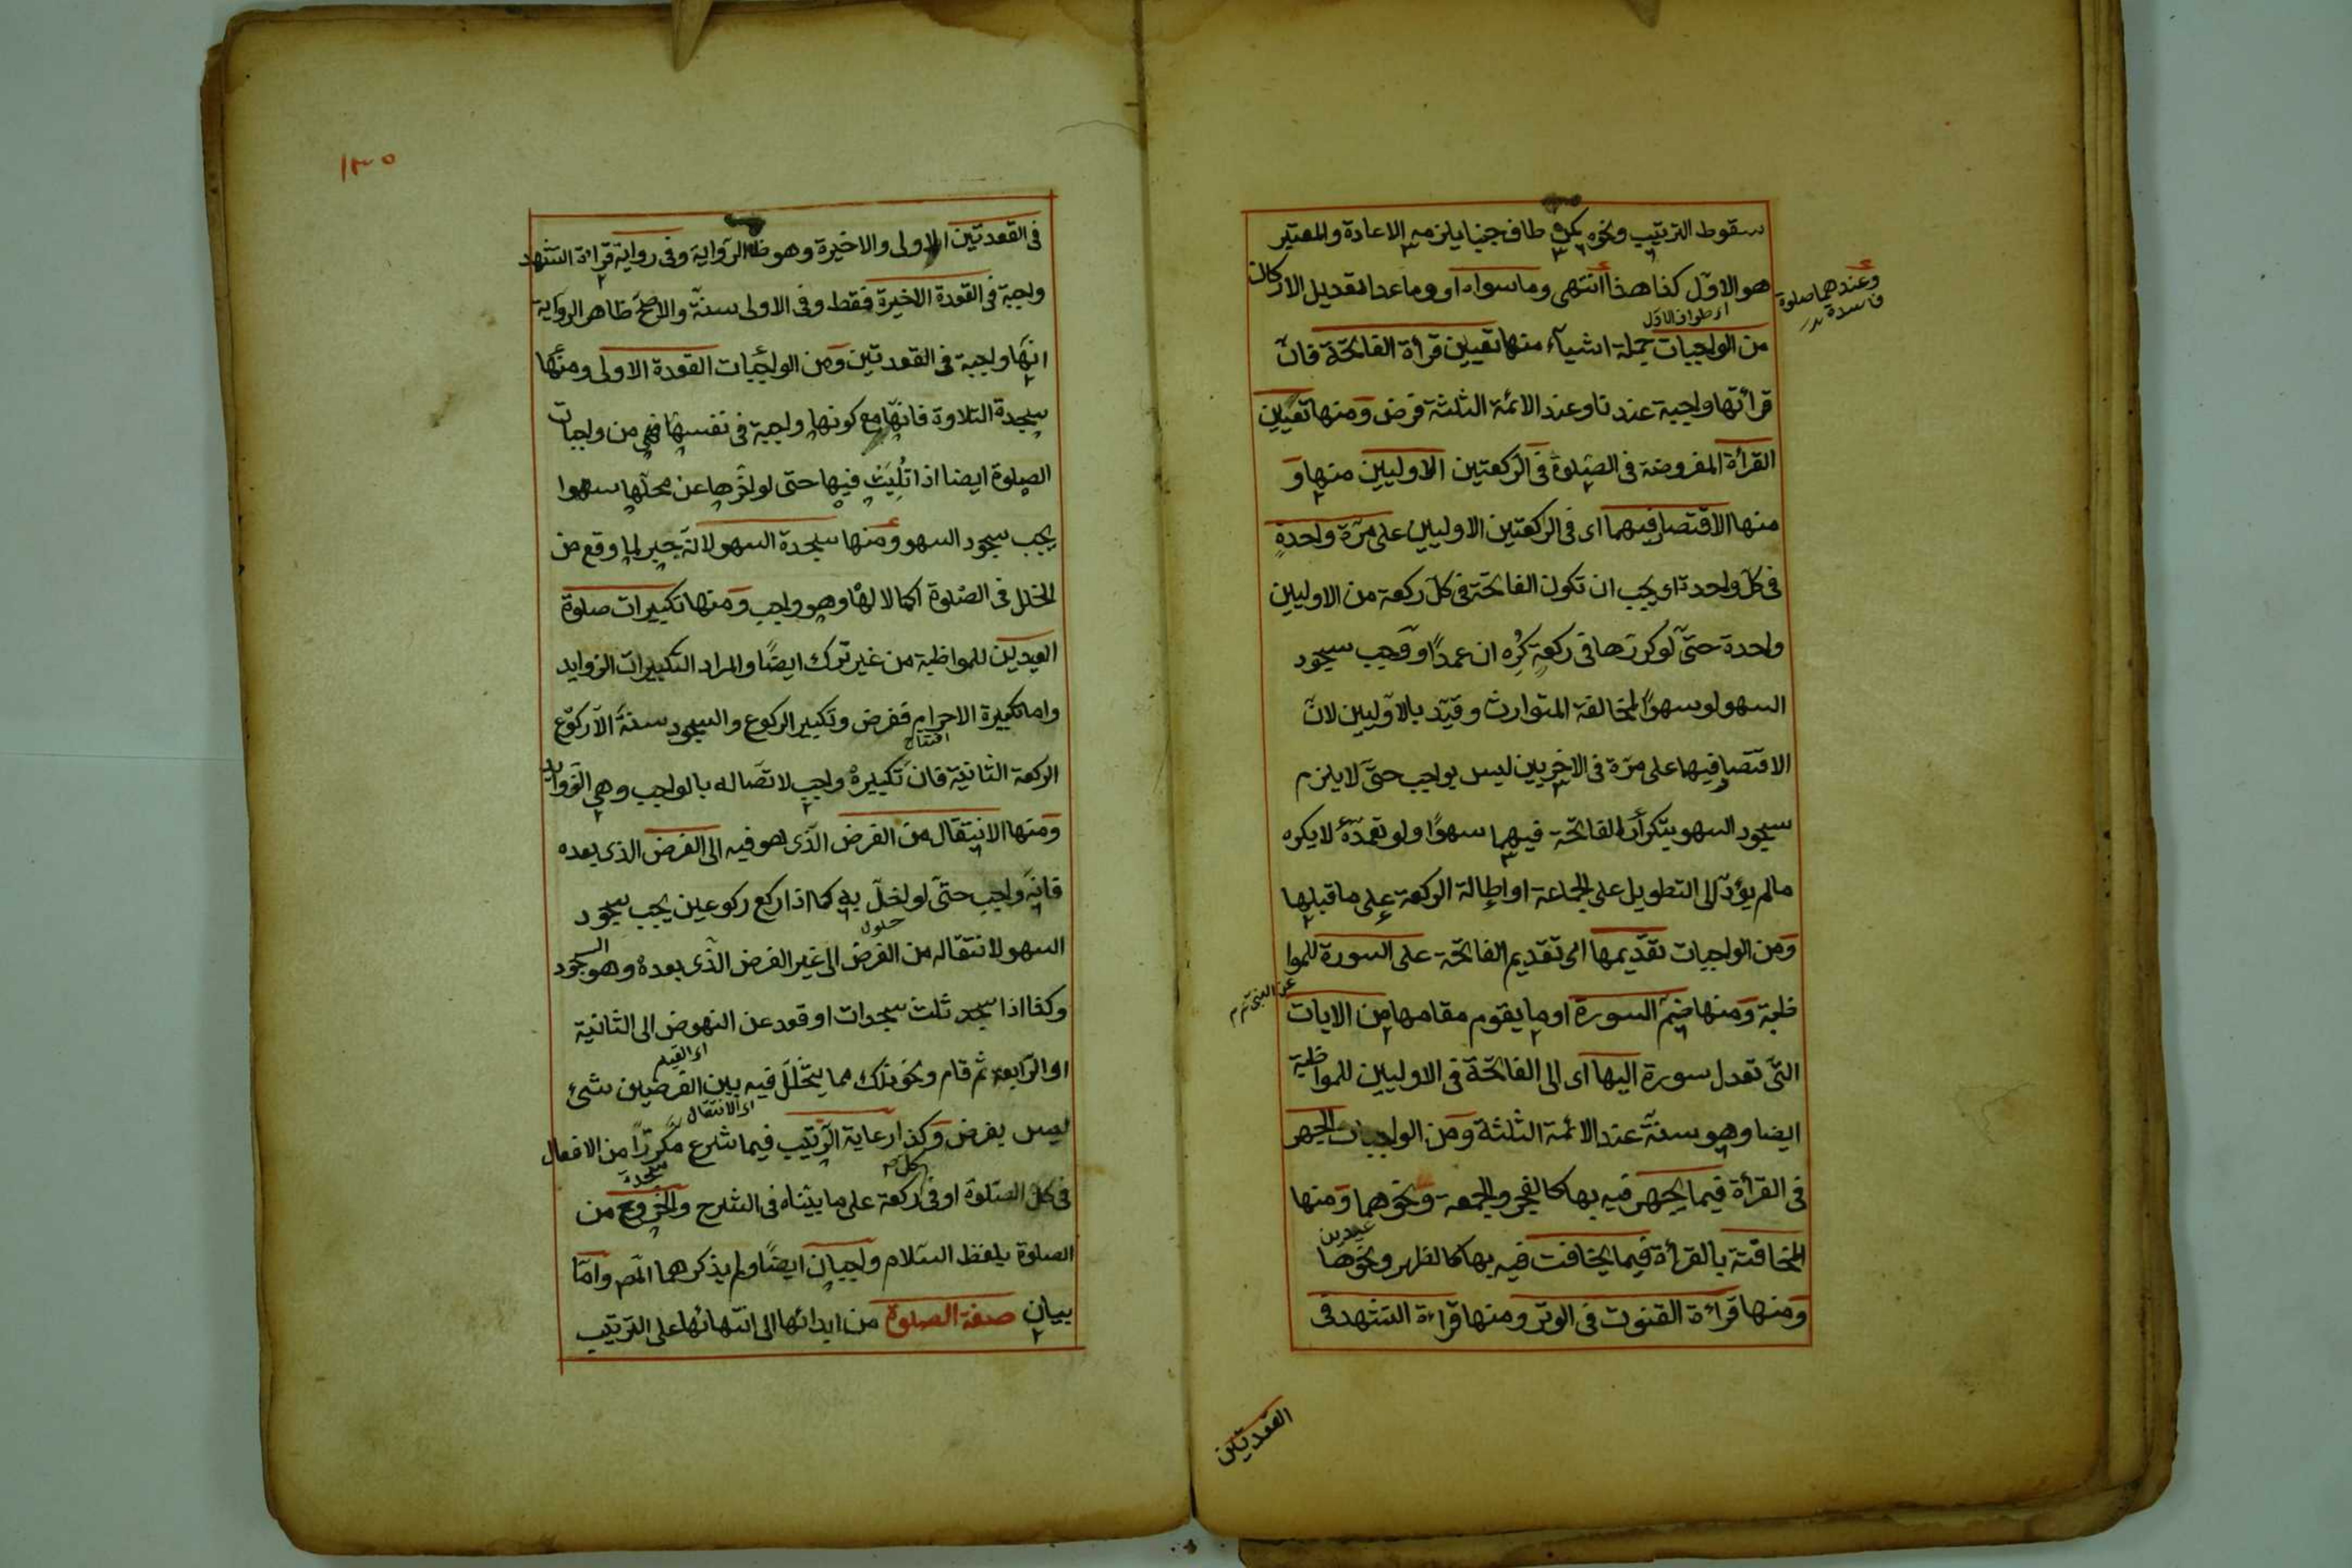 سقوط الترتيب ونحوه يكره طاف جنبا يلزمه الاعادة والمعتبر
هو الاول كذا هذا انتهى وما سواه او وما عدا تعديل الاركان
وعندهما صلوة
فاسدة
اى طواف الاول
من الواجبات جملة اشياء منها تعيين قرأة الفاتحة فانّ
قرأتها واجبة عندنا وعند الائمة الثلثة فرض ومنها تعيين
القرأة المفروضة فى الصلوة فى الركعتين الاوليين منها و
منها الاقتصار فيهما اى فى الركعتين الاوليين على مرّة واحدةٍ
فى كل واحدة اى يجب ان تكون الفاتحة فى كل ركعة من الاوليين
واحدة حتّى لو كررها فى ركعةٍ كُرِه ان عمدًا ووجب سجود
السهو لو سهوًا لمخالفة المتوارث وقيّد بالاوليين لانّ
الاقتصار فيها على مرّة فى الاخريين ليس بواجب حتّى لا يلزم
سجود السهو بتكرار الفاتحة فيهما سهوًا ولو تعمّده لا يكره
مالم يؤدّ الى التطويل على الجماعة او اطالة الركعة على ما قبلها
ومن الواجبات تقديمها اى تقديم الفاتحة على السورة للموا
عن النبى عم
ظبة ومنها ضم السورة او ما يقوم مقامها من الايات
التى تعدل سورة اليها اى الى الفاتحة فى الاوليين للمواظبة
ايضا وهو سنةٌ عند الائمة الثلثة ومن الواجبات الجهر
فى القرأة فيما يجهر فيه بها كالفجر والجمعة ونحوهما ومنها
عيدين
المخافتة بالقرأة فيما يخافت فيه بها كالظهر ونحوها
ومنها قراءة القنوت فى الوتر ومنها قراءة التشهد فى
القعدتين
١٣٥
فى القعدتين الاولى والاخيرة وهو ظاهر الرواية وفى رواية قراءة التشهد
واجبة فى القعدة الاخيرة فقط وفى الاولى سنة والاصح ظاهر الرواية
انها واجبة فى القعدتين ومن الواجبات القعدة الاولى ومنها
سجدة التلاوة فانها مع كونها واجبة فى نفسها فهى من واجبات
الصلوة ايضا اذا تُلِيَتْ فيها حتى لو اخّرها عن محلها سهوا
يجب سجود السهو ومنها سجدة السهو لانه جبر لما وقع من
الخلل فى الصلوة اكمالا لها وهو واجب ومنها تكبيرات صلوة
العيدين للمواظبة من غير ترك ايضًا والمراد التكبيرات الزوايد
واما تكبيرة الاحرام ففرض وتكبير الركوع والسجود سنة الا ركوع
افتتاح
الركعة الثانية فان تكبيره واجب لاتصاله بالواجب وهى الزوايد
ومنها الانتقال من الفرض الذى هو فيه الى الفرض الذى بعده
فانه واجب حتى لو اخلّ به كما اذا ركع ركوعين يجب سجود
السهو لانتقاله من الفرض الى غير الفرض الذى بعده وهو السجود
وكذا اذا سجد ثلث سجدات او قعد عن النهوض الى الثانية
او الرابعة ثم قام ونحو ذلك مما يتخلل فيه بين الفرضين شىء
اى القيام
اى الانتقال
ليس بفرض وكذا رعاية الترتيب فيما شرع مكررًا من الافعال
كل
سجدة
فى كل الصلوة او فى ركعة على ما بيناه فى الشرح والخروج من
الصلوة بلفظ السلام واجبان ايضًا ولم يذكرهما المص واما
بيان صفة الصلوة من ابدائها الى انتهائها على الترتيب